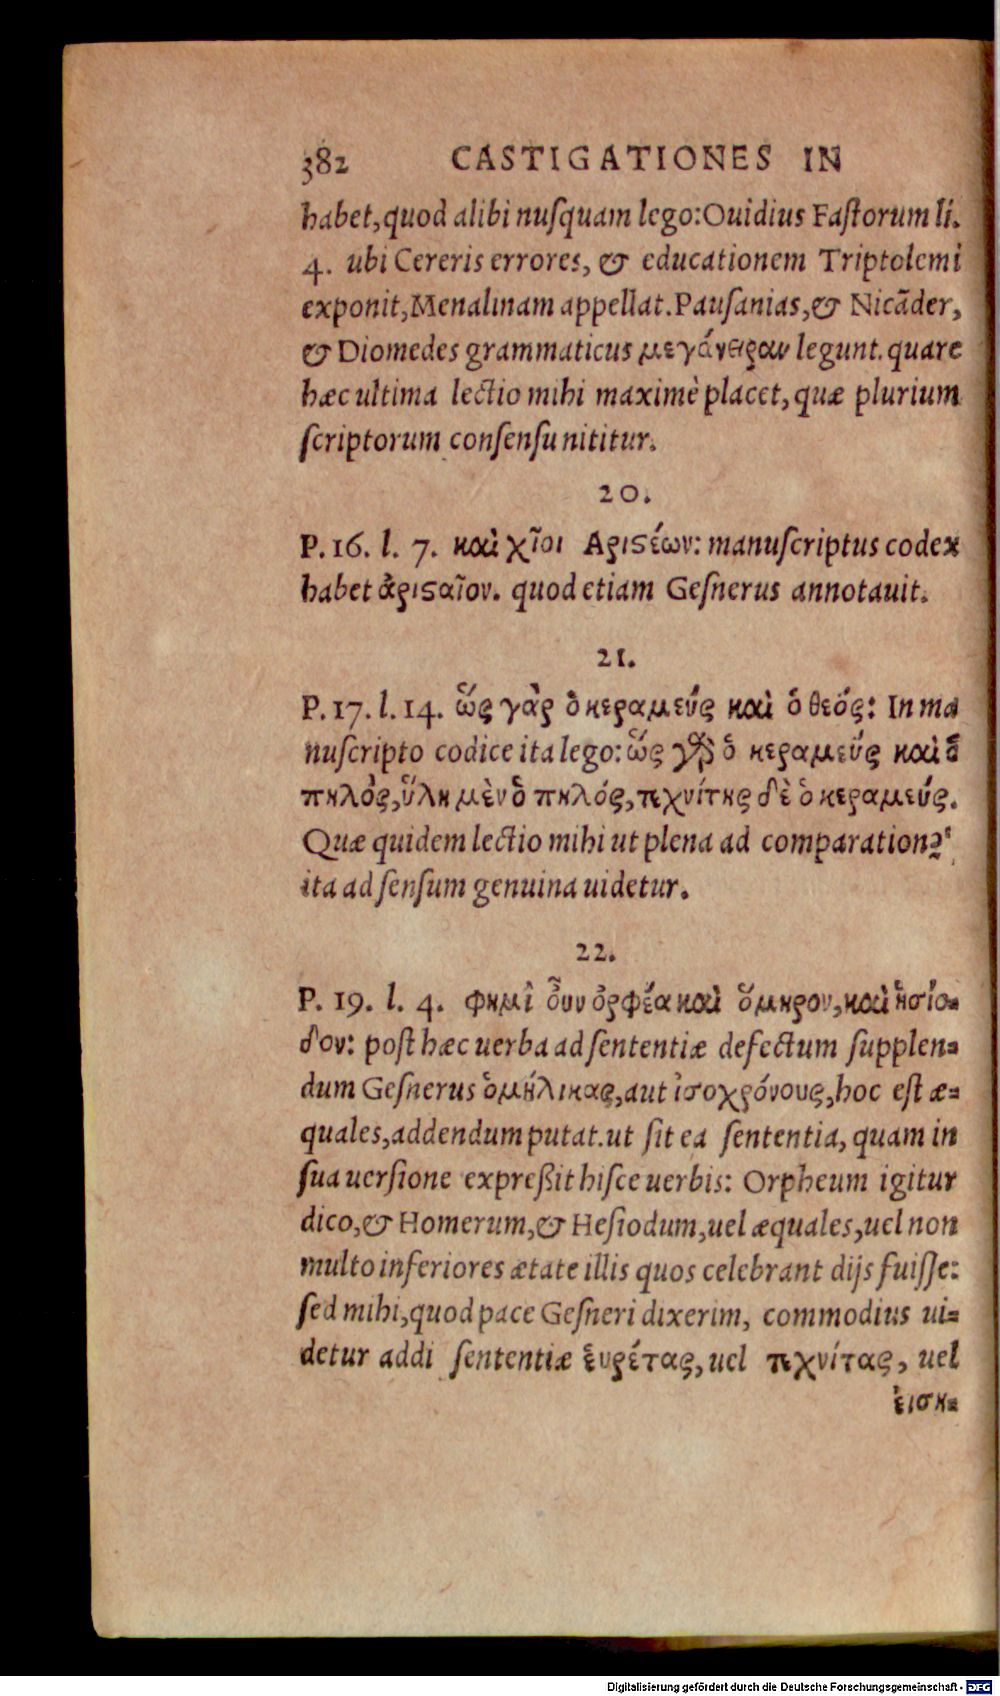 382 CASTIGATIONES IN
habet, quod alibi nusquam lego: Ouidius Fastorum li.
4. ubi Cereris errores, & educationem Triptolemi
exponit, Menalinam appellat. Pausanias, & Nicãder,
& Diomedes grammaticus μεγάνειραν legunt. quare
hæc ultima lectio mihi maximè placet, quæ plurium
scriptorum consensu nititur.
20.
P. 16. l. 7. καὶ χῖοι Αριϛέων: manuscriptus codex
habet ἀριϛαῖον. quod etiam Gesnerus annotauit.
21.
P. 17. l. 14. ὥς γὰρ ὁ κεραμεύς καὶ ὁ θεός: In ma
nuscripto codice ita lego: ὥς γὰρ ὁ κεραμεύς καὶ ὁ
πηλός, ὕλη μὲν ὁ πηλός, τεχνίτης δὲ ὁ κεραμεύς.
Quæ quidem lectio mihi ut plena ad comparationẽ
ita ad sensum genuina uidetur.
22.
P. 19. l. 4. φημὶ οὖν ὀρφέα καὶ ὅμηρον, καὶ ἡσίο-
δον: post hæc uerba ad sententiæ defectum supplen-
dum Gesnerus ὁμήλικας, aut ἰσοχρόνους, hoc est æ-
quales, addendum putat. ut sit ea sententia, quam in
sua uersione expreßit hisce uerbis: Orpheum igitur
dico, & Homerum, & Hesiodum, uel æquales, uel non
multo inferiores ætate illis quos celebrant dijs fuisse:
sed mihi, quod pace Gesneri dixerim, commodius ui-
detur addi sententiæ ἑυρέτας, uel τεχνίτας, uel
ἐιση-
Digitalisierung gefördert durch die Deutsche Forschungsgemeinschaft - DFG